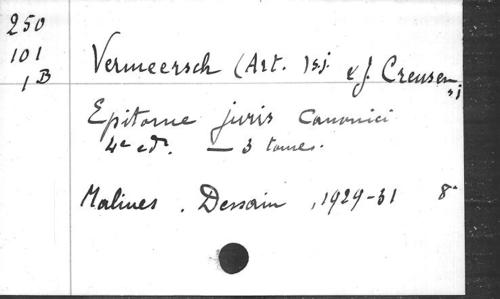 250
101
1B
Vermeersch (Art.) s.j. & J. Creusen s j
Epitome juris canonici
4e edn. — 3 tomes.
Malines . Dessain , 1929-31 8°